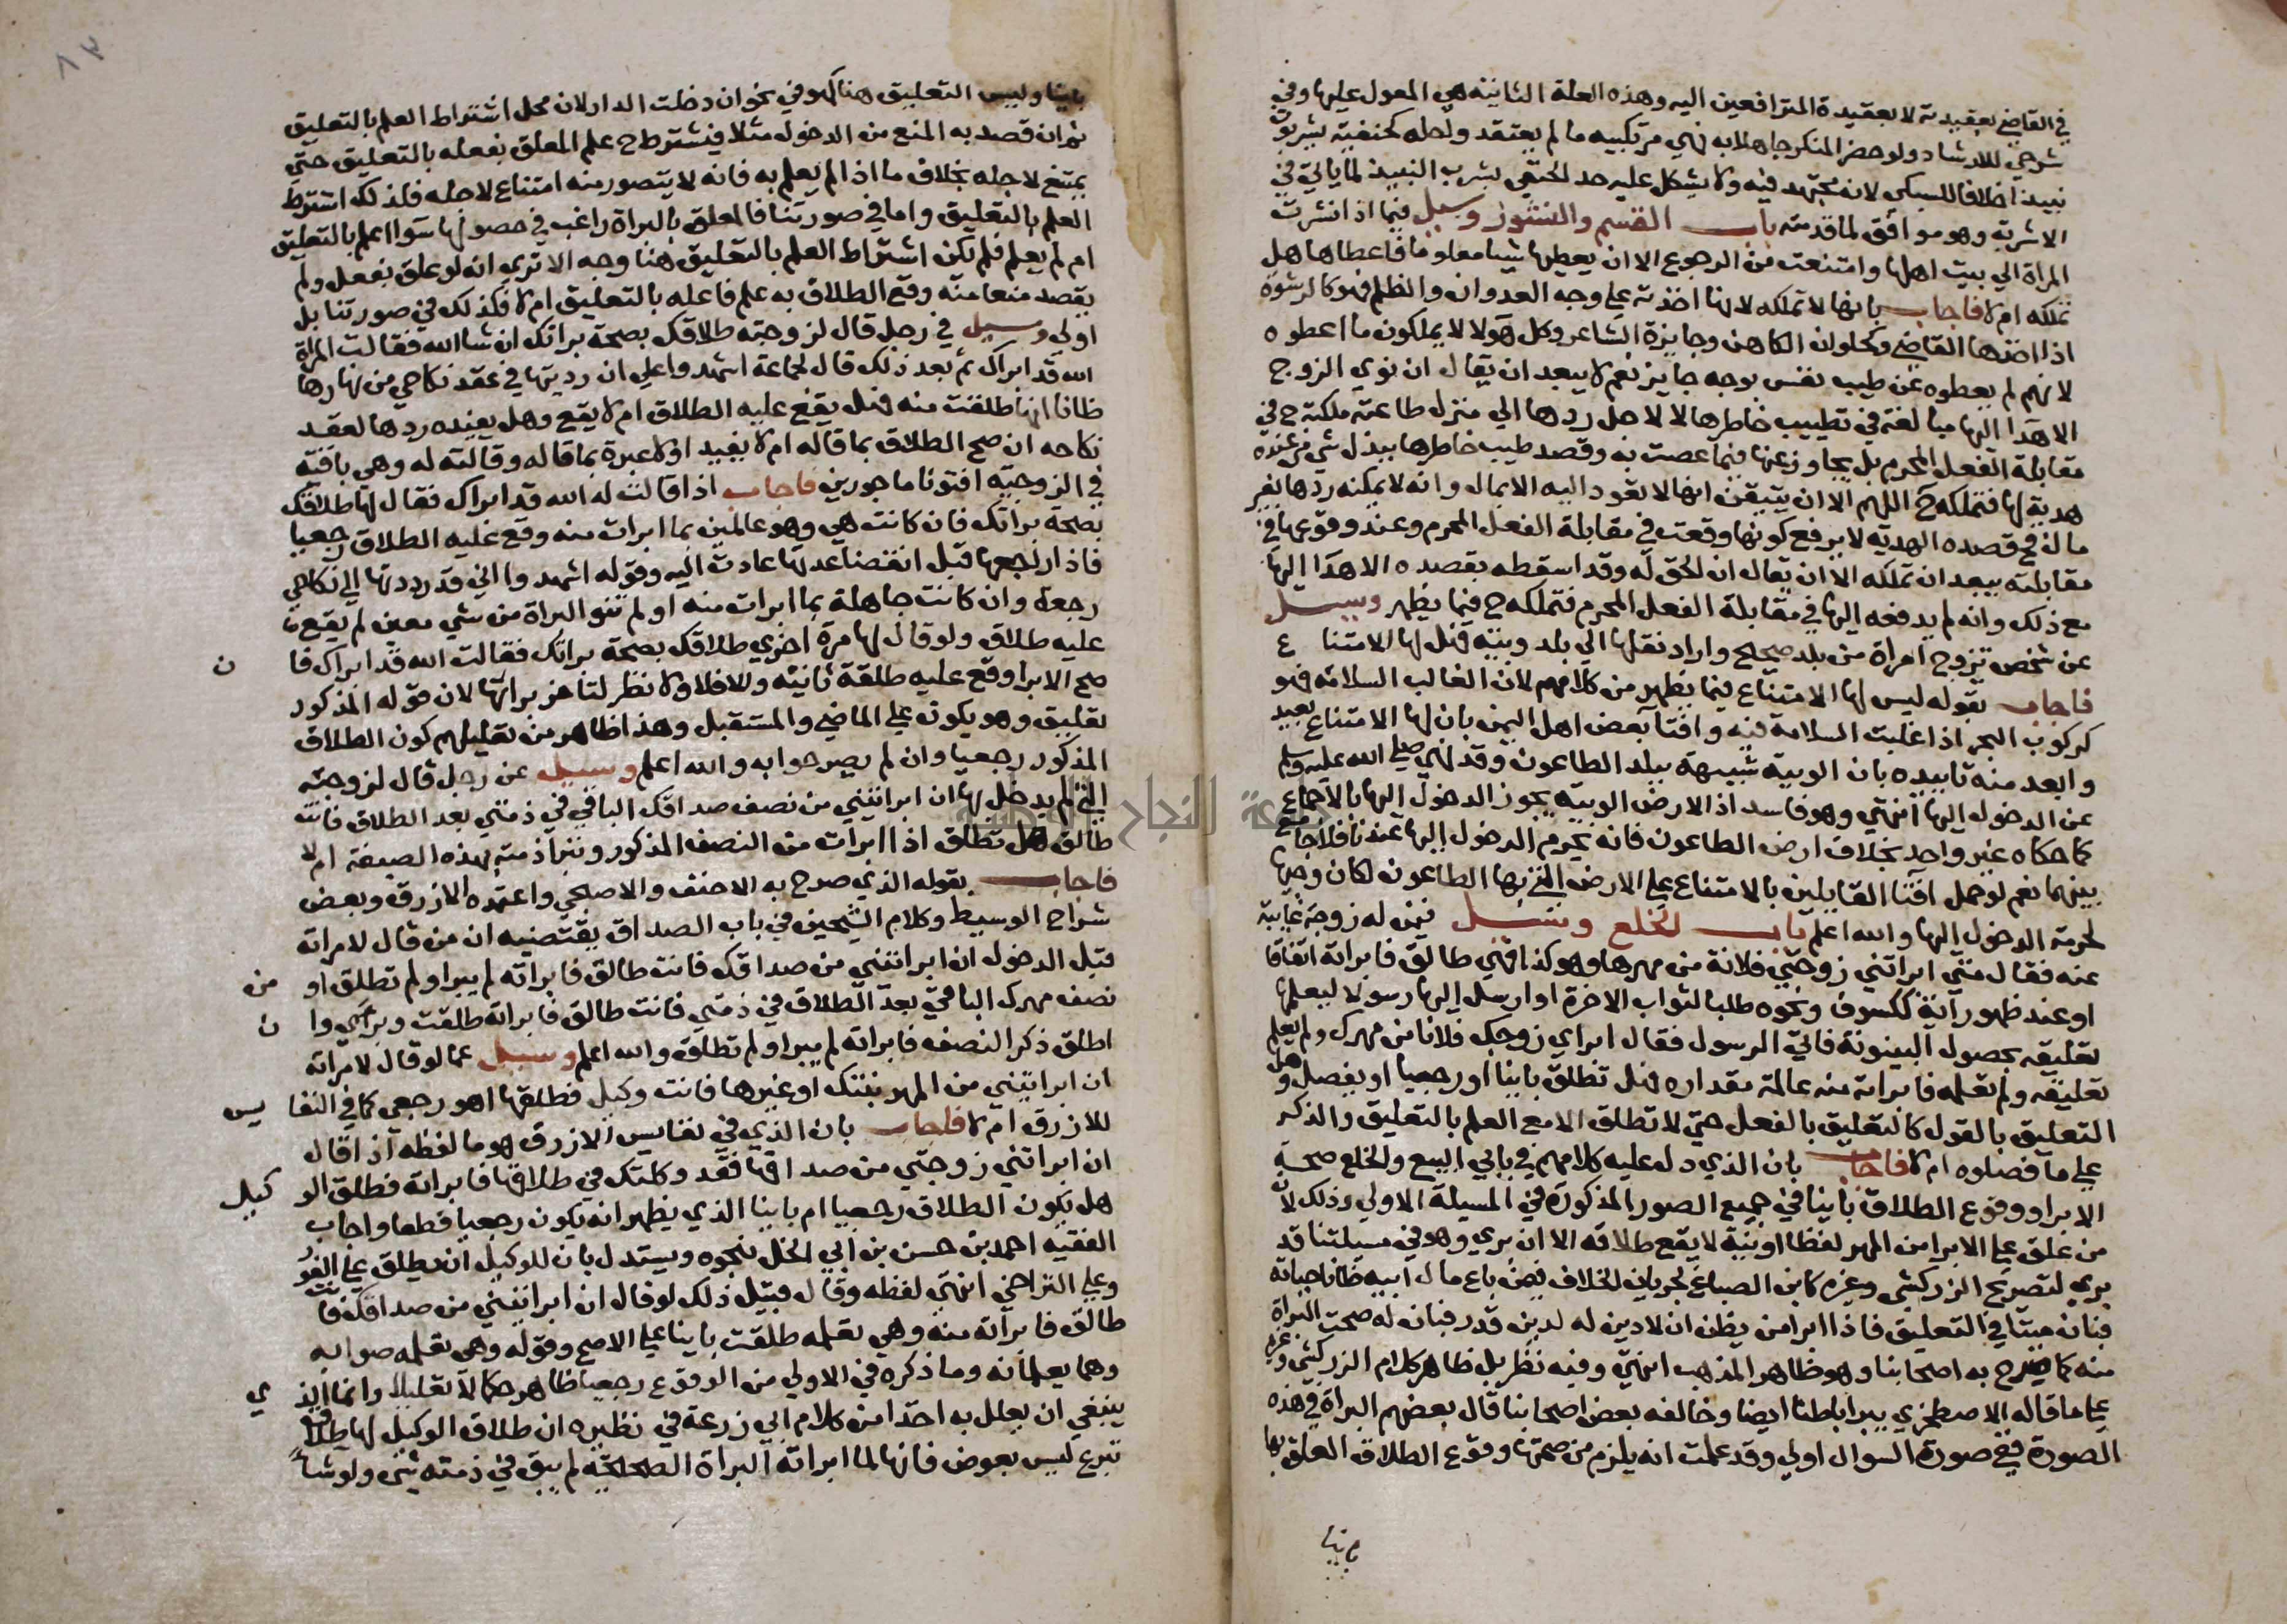 في القاضي بعقيدته لا بعقيدة المترافعين اليه وهذه العلة الثانية هي المعول عليها وفي
شرحي للارشاد ولو حضر المنكر جاهلا به نهي مرتكبيه ما لم يعتقد وحله كحنفية بشربون
نبيذا خلافا للسبكي لانه مجتهد فيه ولا يشكل عليه حد الحنفي بشرب النبيذ لما ياتي في
الاشربة وهو موافق لما قدمته باب القسم والنشوز وسيل فيما اذا نشزت
المراة الي بيت اهلها وامتنعت من الرجوع الا ان يعطيها شيا معلوما فاعطاها هل
تملكه ام لا فاجاب بانها لا تملكه لانها اخذته علي وجه العدوان والظلم فهو كالرشوة
اذا اخذها القاضي وكحلوان الكاهن وجايزة الشاعر وكل هولا لا يملكون ما اعطوه
لانهم لم يعطوه عن طيب نفس بوجه جايز نعم لا يبعد ان يقال ان نوي الزوج
الاهدا اليها مبالغة في تطييب خاطرها لا لاجل ردها الي منزل طاعته ملكته ح في
مقابلة الفعل المحرم بل يجاوزعنها فيما عصت به وقصد طيب خاطرها ببذل شي من عنده
هدية لها فتملكه ح اللهم الا ان يتيقن انها لا تعود اليه الا بمال وانه لا يمكنه ردها بغير
مال فح قصده الهدية لا يرفع كونها وقعت في مقابلة الفعل المحرم وعند وقوعها في
مقابلته يبعد ان تملكه الا ان يقال ان الحق له وقد اسقطه بقصده الاهدا اليها
مع ذلك وانه لم يدفعه اليها في مقابلة الفعل المحرم فتملكه ح فيما يظهر وسيل
عن شخص تزوج امراة من بلد صحيح واراد نقلها الي بلد وبية فهل لها الامتناع
فاجاب بقوله ليس لها الامتناع فيما يظهر من كلامهم لان الغالب السلامة فهو
كركوب البحر اذا غلبت السلامة فيه وافتا بعض اهل اليمن بان لها الامتناع بعيد
وابعد منه تاييده بان الوبية شبيهة ببلد الطاعون وقد نهي صلي الله عليه وسلم
عن الدخول اليها انتهي وهو فاسد اذ الارض الوبية يجوز الدخول اليها بالاجماع
كما حكاه غير واحد بخلاف ارض الطاعون فانه يحرم الدخول اليها عندنا فلا جامع
بينهما نعم لو حمل افتا القايلين بالامتناع علي الارض التي بها الطاعون لكان وجيها
لحرمة الدخول اليها والله اعلم باب الخلع وسيل فيمن له زوجة غايبة
عنه فقال متي ابراتني زوجتي فلانة من مهرها وهو كذا فهي طالق فابراته اتفاقا
او عند ظهور اية ككسوف ونحوه طلبا لثواب الاخرة او ارسل اليها رسولا ليعلمها
تعليقه بحصول البينونة فاتي الرسول فقال ابراي زوجك فلانا من مهرك ولم يعلم
تعليقه ولم تعلمه فابراته منه عالمة مقداره فهل تطلق باينا او رجعيا او يفصل وهل
التعليق بالقول كالتعليق بالفعل حتي لا تطلق الا مع العلم بالتعليق والذكر
علي ما فصلوه ام لا فاجاب بان الذي دل عليه كلامهم في بابي البيع والخلع صحة
الابرا ووقوع الطلاق باينا في جميع الصور المذكورة في المسيلة الاولي وذلك لان
من علق علي الابرا من المهر لفظا او بنية لا يقع طلاقه الا ان بري وهو في مسيلتنا قد
بري لتصريح الزركشي وغيره كابن الصباغ بجريان الخلاف فيمن باع مال ابيه ظانا حياته
فبان ميتا في التعليق فاذا ابرا من يظن ان لا دين له لدين قدر فبان له صحت البراة
منه كما صرح به اصحابنا وهو ظاهر المذهب انتهي وفيه نظر بل ظاهر كلام الزركشي وغيره
علي ما قاله الاصطخري يبرا باطنا ايضا وخالفه بعض اصحابنا قال بعضهم البراة في هذه
الصورة ففي صورة السوال اولي وقد علمت انه يلزم من صحتها وقوع الطلاق المعلق بها
باينا
باينا وليس التعليق هنا كهو في نحو ان دخلت الدار لان محل اشتراط العلم بالتعليق
ثم ان قصد به المنع من الدخول مثلا فيشترط ح علم المعلق بفعله بالتعليق حتي
يمتنع لاجله بخلاف ما اذا لم يعلم به فانه لا يتصور منه امتناع لاجله فلذلك اشترط
العلم بالتعليق واما في صورتنا فالمعلق بالبراة راغب في حصولها سواا علم بالتعليق
ام لم يعلم فلم يكن اشتراط العلم بالتعليق هنا وجه الا تري انه لو علق بفعل ولم
يقصد منعا منه وقع الطلاق به علم فاعله بالتعليق ام لا فكذلك في صورتنا بل
اولي وسيل في رجل قال لزوجته طلاقك بصحة براتك ان شا الله فقالت المراة
الله قد ابراك ثم بعد ذلك قال لجماعة اشهدوا علي ان رديتها في عقد نكاحي من نهارها
ظانا انها طلقت منه فهل يقع عليه الطلاق ام لا يقع وهل يفيده ردها لعقد
نكاحه ان صح الطلاق بما قاله ام لا يفيد او لا عبرة بما قاله وقالته له وهي باقية
في الزوجية افتونا ماجورين فاجاب اذا قالت له الله قد ابراك فقال لها طلاقك
بصحة براتك فان كانت هي وهو عالمين بما ابرات منه وقع عليه الطلاق رجعيا
فاذا ارتجعها قبل انقضا عدتها عادت اليه وقوله اشهدوا اني قد رددتها الي نكاحي
رجعة وان كانت جاهلة بما ابرات منه او لم تنو البراة من شي معين لم يقع
عليه طلاق ولو قال لها مرة اخري طلاقك بصحة براتك فقالت الله قد ابراك فان
صح الابرا وقع عليه طلقة ثانية وللا فلا ولا نظر لتاخر براتها لان قوله المذكور
تعليق وهو يكون علي الماضي والمستقبل وهذا ظاهر من تعليلهم كون الطلاق
المذكور رجعيا وان لم يصر جوابه والله اعلم وسيل عن رجل قال لزوجته
التي لم يدخل بها ان ابراتني من نصف صداقك الباقي في ذمتي بعد الطلاق فانت
طالق هل تطلق اذا ابرات من النصف المذكور وتبرا ذمته بهذه الصيغة ام لا
فاجاب بقوله الذي صرح به الاحنف والاصبحي واعتمده الازرق وبعض
شراح الوسيط وكلام الشيخين في باب الصداق يقتضيه ان من قال لامراته
قبل الدخول ان ابراتني من صداقك فانت طالق فابراته لم يبرا ولم تطلق او من
نصف مهرك الباقي بعد الطلاق في ذمتي فانت طالق فابراته طلقت وبري وان
اطلق ذكر النصف فابراته لم يبرا ولم تطلق والله اعلم وسيل عما لو قال لامراته
ان ابراتيني من المهر بنتك او غيرها فانت وكيل فطلقها اهو رجعي كما في النفايس
للازرق ام لا فاجاب بان الذي في نفايس الازرق هو ما لفظه اذا قال
ان ابراتني زوجتي من صداقها فقد وكلتك في طلاقها فابراته فطلق الوكيل
هل يكون الطلاق رجعيا ام باينا الذي يظهر انه يكون رجعيا قطعا واجاب
الفقيه احمد بن حسن بن ابي الخل بنحوه ويستدل بان للوكيل ان يطلق علي الفور
وعلي التراخي انتهي لفظه وقال قبيل ذلك لو قال ان ابراتيني من صداقك فانت
طالق فابراته منه وهي تعلمه طلقت باينا علي الاصح وقوله وهي تعلمه صوابه
وهما يعلمانه وما ذكره في الاولي من الوقوع رجعيا ظاهر حكما لا تعليلا وانما الذي
ينبغي ان يعلل به اخذا من كلام ابي زرعة في نظيره ان طلاق الوكيل لها طلاق
تبرع ليس بعوض فانها لما ابراته البراة الصحيحة لم يبق في ذمته شي ولو شا